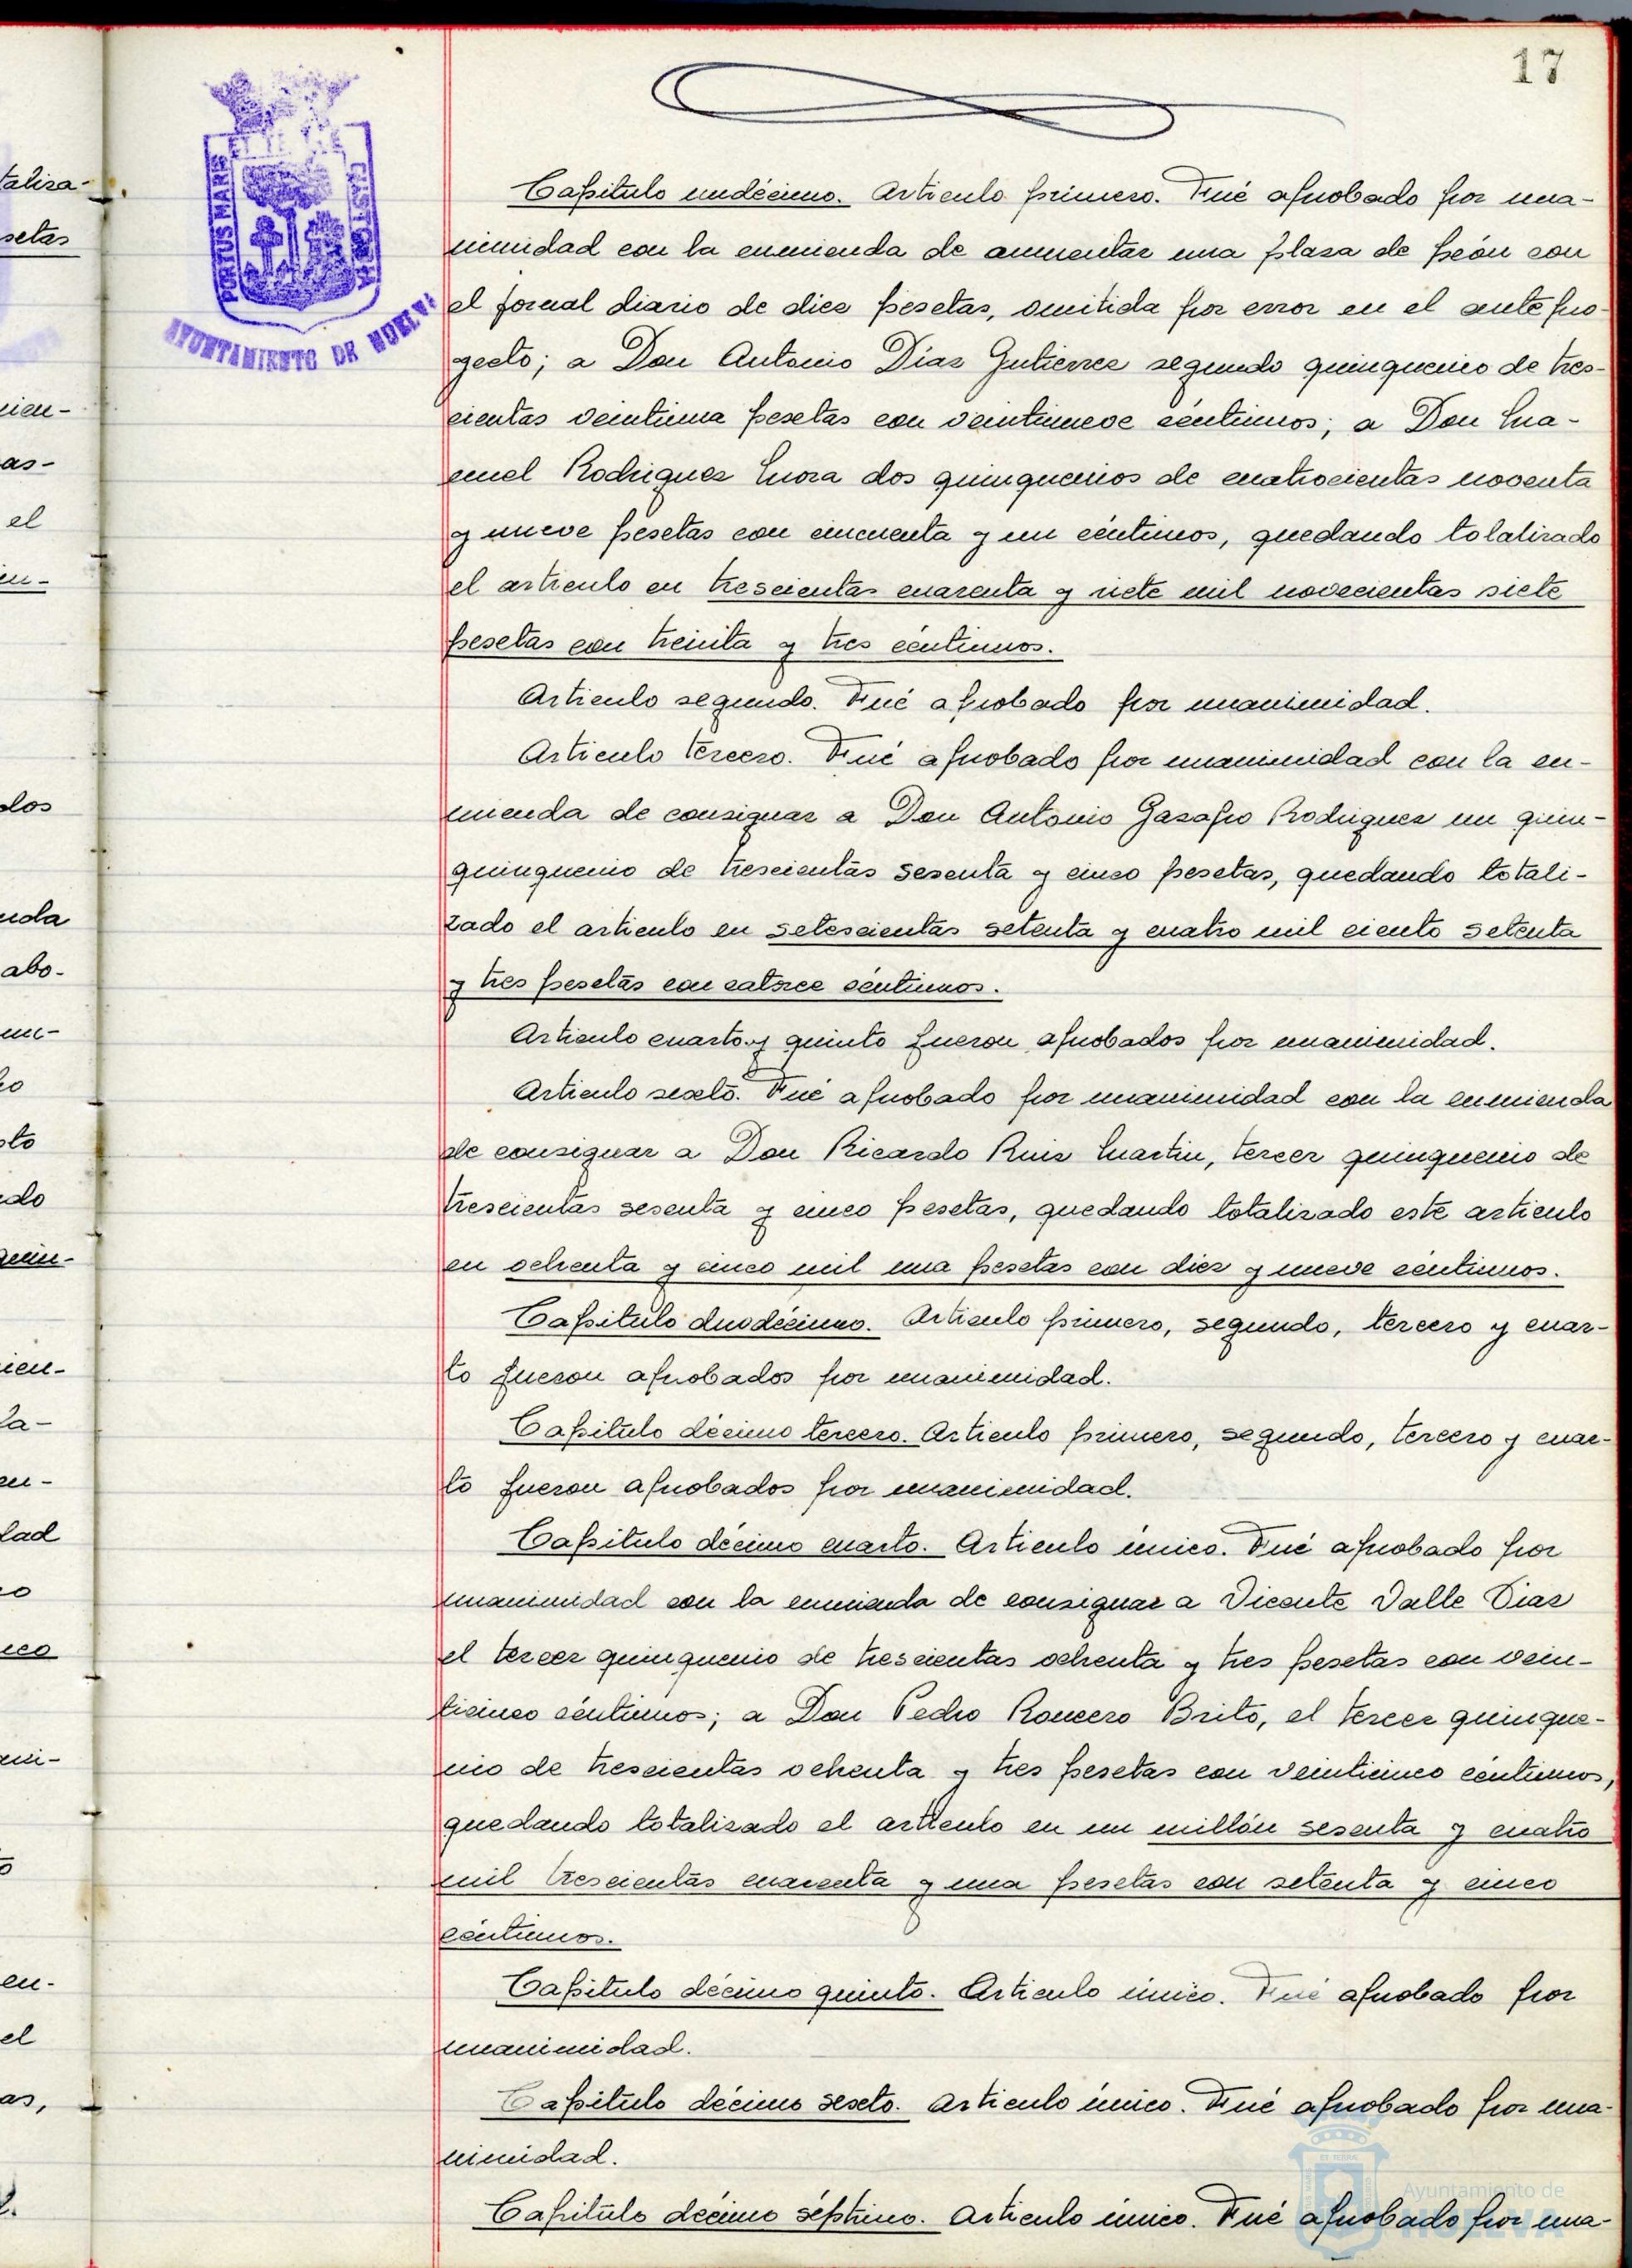 17
PORTUS MARIS ET TERRAE CUSTODIA
AYUNTAMIENTO DE HUELVA
Capitulo undécimo. Articulo primero. Fué aprobado por una-
nimidad con la enmienda de aumentar una plaza de peón con
el jornal diario de diez pesetas, omitida por error en el antepro-
yecto; a Don Antonio Díaz Gutierrez segundo quinquenio de tres-
cientas veintiuna pesetas con veintinueve céntimos; a Don Ma-
nuel Rodriguez Mora dos quinquenios de cuatrocientas noventa
y nueve pesetas con cincuenta y un céntimos, quedando totalizado
el articulo en trescientas cuarenta y siete mil novecientas siete
pesetas con treinta y tres céntimos.
Articulo segundo. Fué aprobado por unanimidad.
Articulo tercero. Fué aprobado por unanimidad con la en-
mienda de consignar a Don Antonio Gazapo Rodriguez un quin-
quinquenio de trescientas sesenta y cinco pesetas, quedando totali-
zado el articulo en setescientas setenta y cuatro mil ciento setenta
y tres pesetas con catorce céntimos.
Articulo cuarto y quinto fueron aprobados por unanimidad.
Articulo sexto. Fué aprobado por unanimidad con la enmienda
de consignar a Don Ricardo Ruiz Martin, tercer quinquenio de
trescientas sesenta y cinco pesetas, quedando totalizado este articulo
en ochenta y cinco mil una pesetas con diez y nueve céntimos.
Capitulo duodécimo. Articulo primero, segundo, tercero y cuar-
to fueron aprobados por unanimidad.
Capitulo décimo tercero. Articulo primero, segundo, tercero y cuar-
to fueron aprobados por unanimidad.
Capitulo décimo cuarto. Articulo único. Fué aprobado por
unanimidad con la enmienda de consignar a Vicente Valle Diaz
el tercer quinquenio de trescientas ochenta y tres pesetas con vein-
ticinco céntimos; a Don Pedro Roncero Brito, el tercer quinque-
nio de trescientas ochenta y tres pesetas con veinticinco céntimos,
quedando totalizado el articulo en un millón sesenta y cuatro
mil trescientas cuarenta y una pesetas con setenta y cinco
céntimos.
Capitulo décimo quinto. Articulo único. Fué aprobado por
unanimidad.
Capitulo décimo sexto. Articulo único. Fué aprobado por una-
nimidad.
Capitulo décimo séptimo. Articulo único. Fué aprobado por una-
Ayuntamiento de
HUELVA